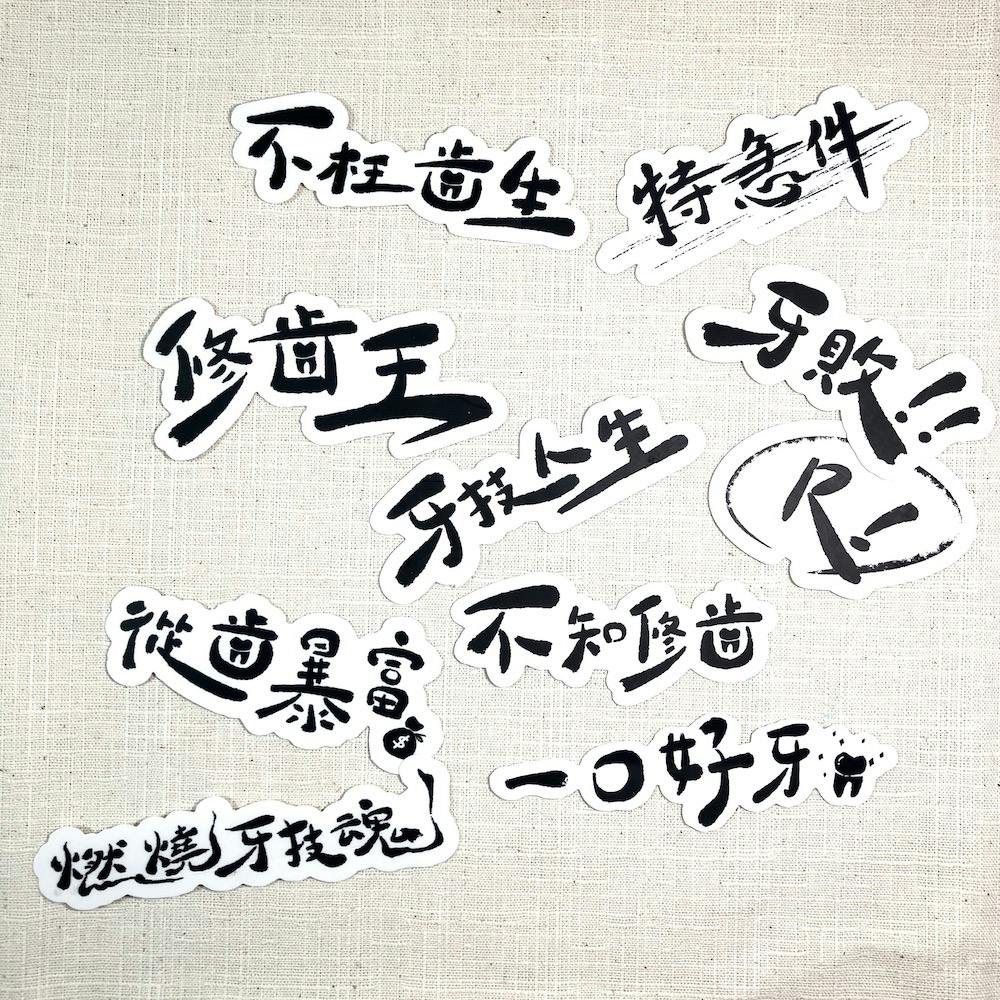 不枉齒生
特急件
修齒王
牙敗!!
牙技人生
尺!
從齒暴富
$
不知修齒
一口好牙
燃燒牙技魂